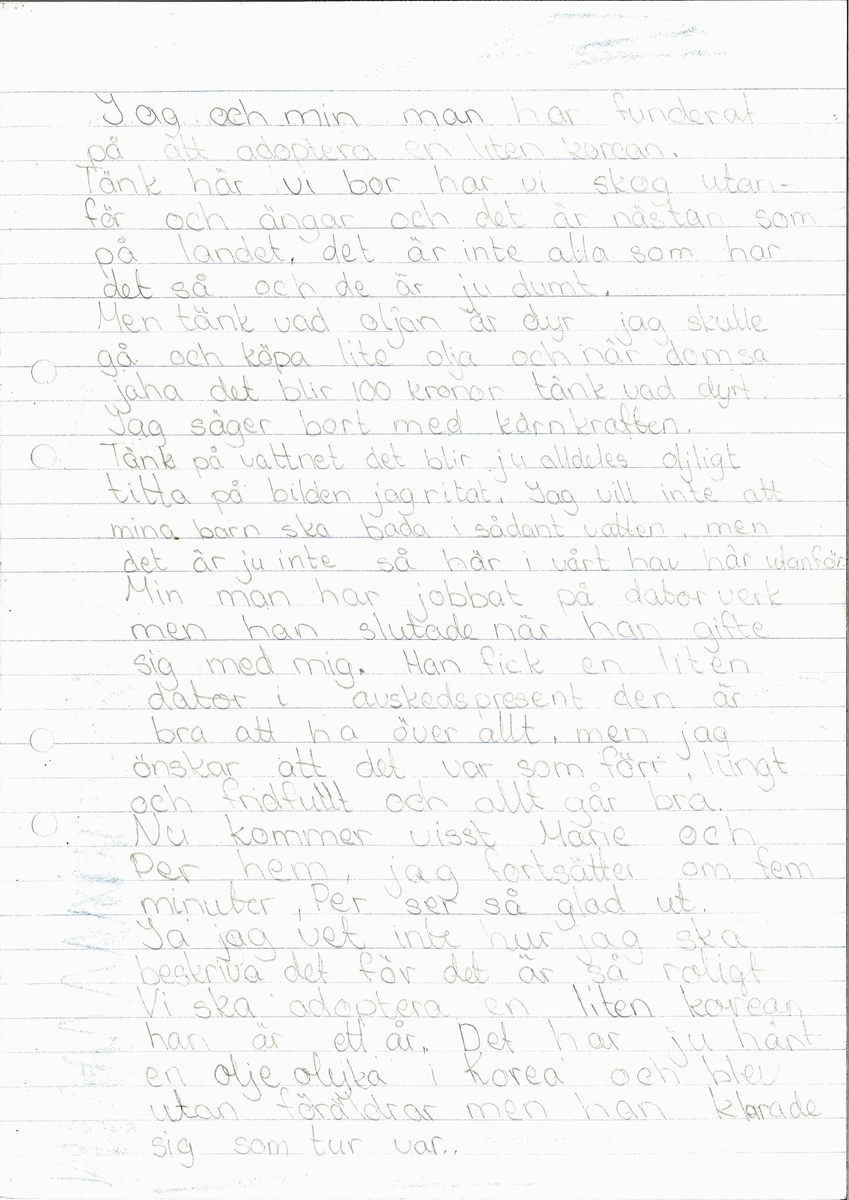 Jag och min man har funderat
på att adoptera en liten korean.
Tänk här vi bor har vi skog utan-
för och ängar och det är nästan som
på landet. det är inte alla som har
det så och de är ju dumt.
Men tänk vad oljan är dyr jag skulle
gå och köpa lite olja och när domsa
jaha det blir 100 kronor tänk vad dyrt.
Jag säger bort med kärnkraften.
Tänk på vattnet det blir ju alldeles oljligt
titta på bilden jag ritat. Jag vill inte att
mina barn ska bada i sådant vatten, men
det är ju inte så här i vårt hav här utanför.
Min man har jobbat på datorverk
men han slutade när han gifte
sig med mig. Han fick en liten
dator i avskedspresent den är
bra att ha över allt, men jag
önskar att det var som förr, lungt
och fridfullt och allt går bra.
Nu kommer visst Marie och
Per hem, jag fortsätter om fem
minuter, Per ser så glad ut.
Ja jag vet inte hur jag ska
beskriva det för det är så roligt
Vi ska adoptera en liten korean
han är ett år. Det har ju hänt
en olje olyka i Korea och blev
utan föräldrar men han klarade
sig som tur var..